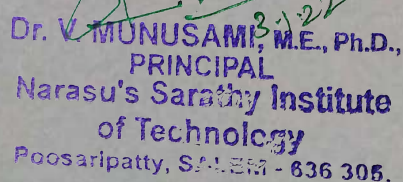 Dr. V. MUNUSAMI, M.E., Ph.D.,
PRINCIPAL
Narasu's Sarathy Institute
of Technology
Poosaripatty, SALEM - 636 305.